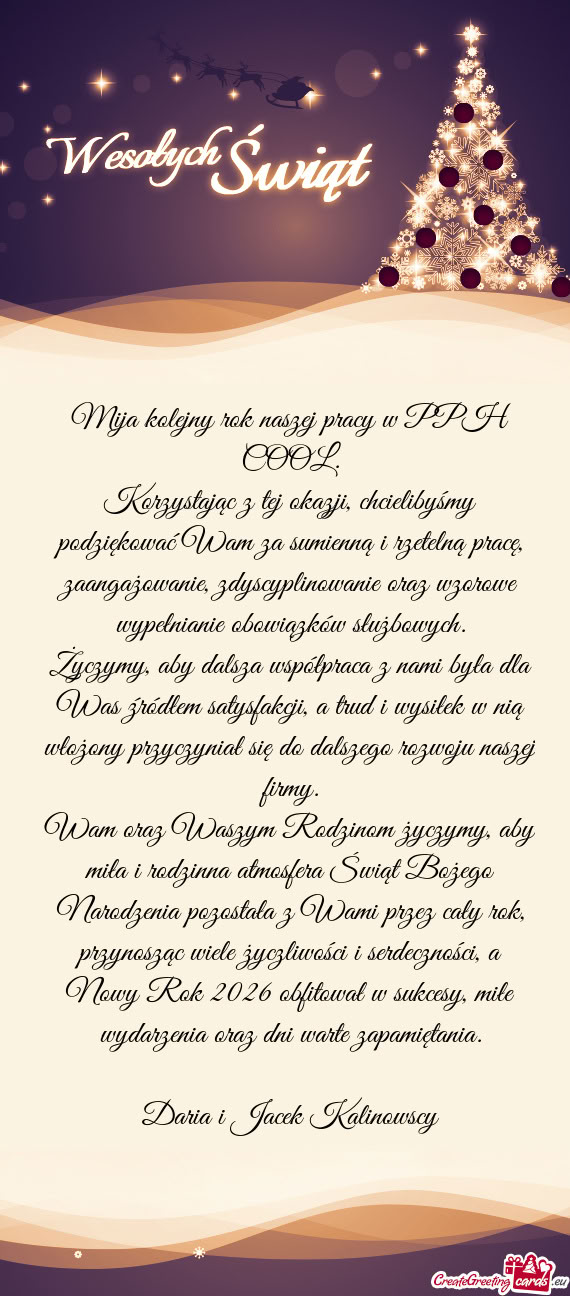 Wesołych Świąt
Mija kolejny rok naszej pracy w PPH
COOL.
Korzystając z tej okazji, chcielibyśmy
podziękować Wam za sumienną i rzetelną pracę,
zaangażowanie, zdyscyplinowanie oraz wzorowe
wypełnianie obowiązków służbowych.
Życzymy, aby dalsza współpraca z nami była dla
Was źródłem satysfakcji, a trud i wysiłek w nią
włożony przyczyniał się do dalszego rozwoju naszej
firmy.
Wam oraz Waszym Rodzinom życzymy, aby
miła i rodzinna atmosfera Świąt Bożego
Narodzenia pozostała z Wami przez cały rok,
przynosząc wiele życzliwości i serdeczności, a
Nowy Rok 2026 obfitował w sukcesy, miłe
wydarzenia oraz dni warte zapamiętania.
Daria i Jacek Kalinowscy
CreateGreetingcards.eu